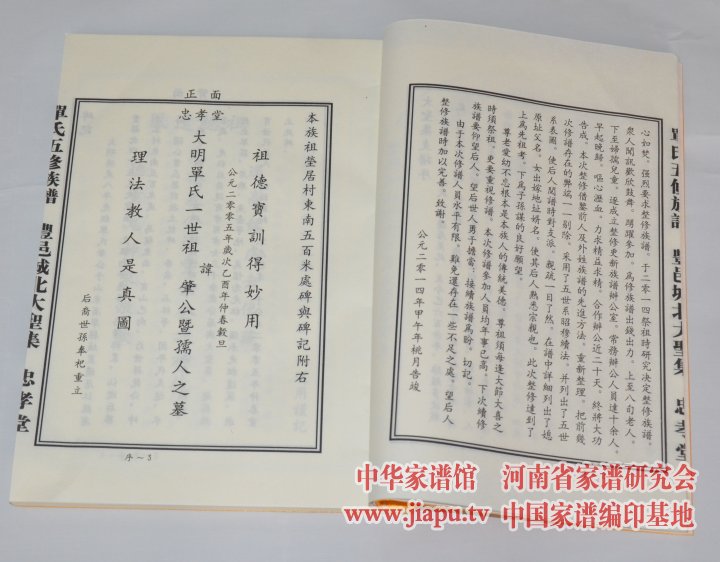 單氏五修族譜　豐邑城北大聖集　忠孝堂
正面
忠孝堂
本族祖塋居村東南五百米處碑與碑記附右
祖德寶訓得妙用
公元二零零五年歲次乙酉年仲春穀旦
大明單氏一世祖　諱肇公暨孺人之墓
理法教人是真圖
后裔世孫奉祀重立
序～3
心如焚，强烈要求整修族譜。于二零一四祭祖時研究决定整修族譜。
衆人聞訊歡欣鼓舞。踴躍參加。爲修族譜出錢出力。上至八旬老人。
下至婦孺兒童。逐成立整修更新族譜辦公室。常務辦公人員達十余人。
早起晚歸。嘔心瀝血。力求精益求精。合作辦公近二十天。終將大功
告成。本次整修借鑒前人及外姓族譜的先進方法。重新整理。把前幾
次修譜存在的弊端一一剔除。采用了五世系昭穆續法。并列出了五世
系表圖。使后人閱譜時對支派。親疏一目了然。在譜中詳細列出了遷
原址父名。女出嫁地址婿名。使其后人熟悉宗親也。此次整修達到了
上爲先祖考。下爲子孫謀的良好願望。
尊老愛幼不忘根本是本族人的傳統美德。尊祖須每逢大節大喜之
時須祭祖。更要重視修譜。本次修譜參加人員均年事已高。下次續修
族譜要仰望后人。望后世人勇于擔當。接續族譜爲盼。切記。
由于本次修譜人員水平有限。難免還存在一些不足之處。望后人
整修族譜時加以完善。致謝。
公元二零一四年甲午年桃月告竣
單氏五修族譜　豐邑城北大聖集　忠孝堂
中华家谱馆　河南省家谱研究会
www.jiapu.tv 中国家谱编印基地